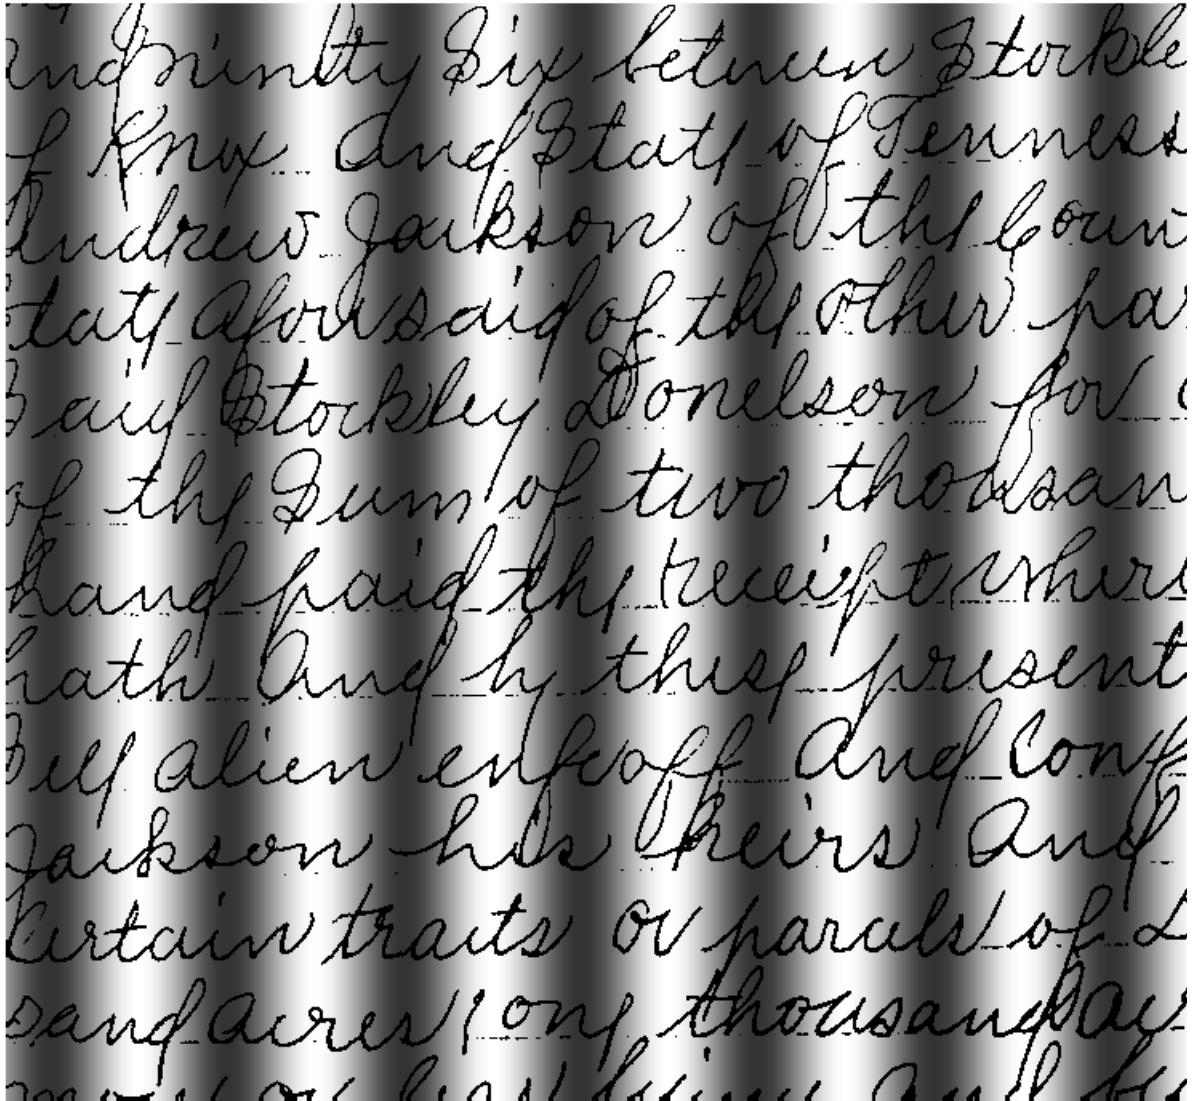 and ninetty Six between Stockle
of Knox And State of Tenness
Andrew Jackson of the Coun
State aforesaid of the other par
Said Stockley Donelson for
of the Sum of two thousan
hand paid the receipt where
hath And by these present
Sell alien enfeoff And Conf
Jackson his heirs And
Certain tracts or parcels of L
sand acres one thousand acr
more or less being and